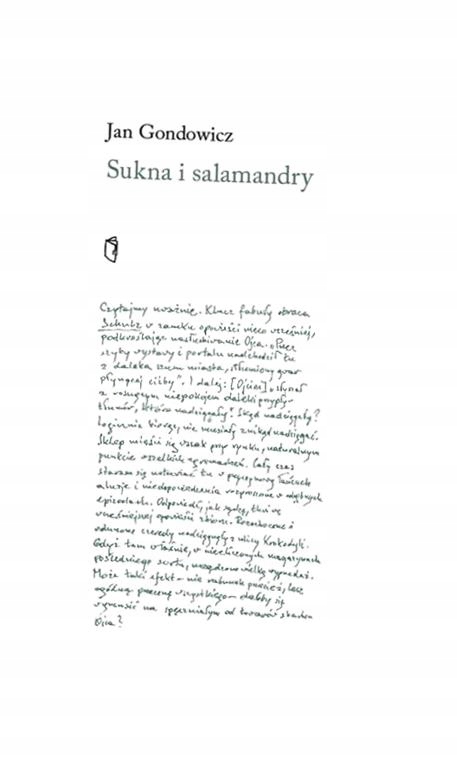 Jan Gondowicz
Sukna i salamandry
Czytajmy uważnie. Klucz fabuły obraca
Schulz w zamku opowieści nieco wcześniej,
podkreślając nasłuchiwanie Ojca. „Przez
szyby wystawy i portalu nadchodził tu
z daleka szum miasta, stłumiony gwar
płynącej ciżby”. I dalej: [Ojciec] „słyszał
z rosnącym niepokojem daleki przypływ
tłumów, które nadciągały”. Skąd nadciągały?
Logicznie biorąc, nie musiały znikąd nadciągać.
Sklep mieści się wszak przy rynku, naturalnym
punkcie wszelkich zgromadzeń. Cały czas
staram się nanizać tu w łańcuch
aluzje i niedopowiedzenia w odrębnych
epizodach. Odpowiedź, jak sądzę, tkwi we
wcześniejszej opowieści zbioru. Rozochocone i
odurzone czeredy nadciągnęły z ulicy Krokodyli.
Gdyż tam właśnie, w niezliczonych magazynach
pośledniego sortu, urządzono wielką wyprzedaż.
Może taki efekt – nie rabunek przecież, lecz
ogólną przecenę wszystkiego – dałby się
wynosić na spęczniałym od towarów
Ojca?